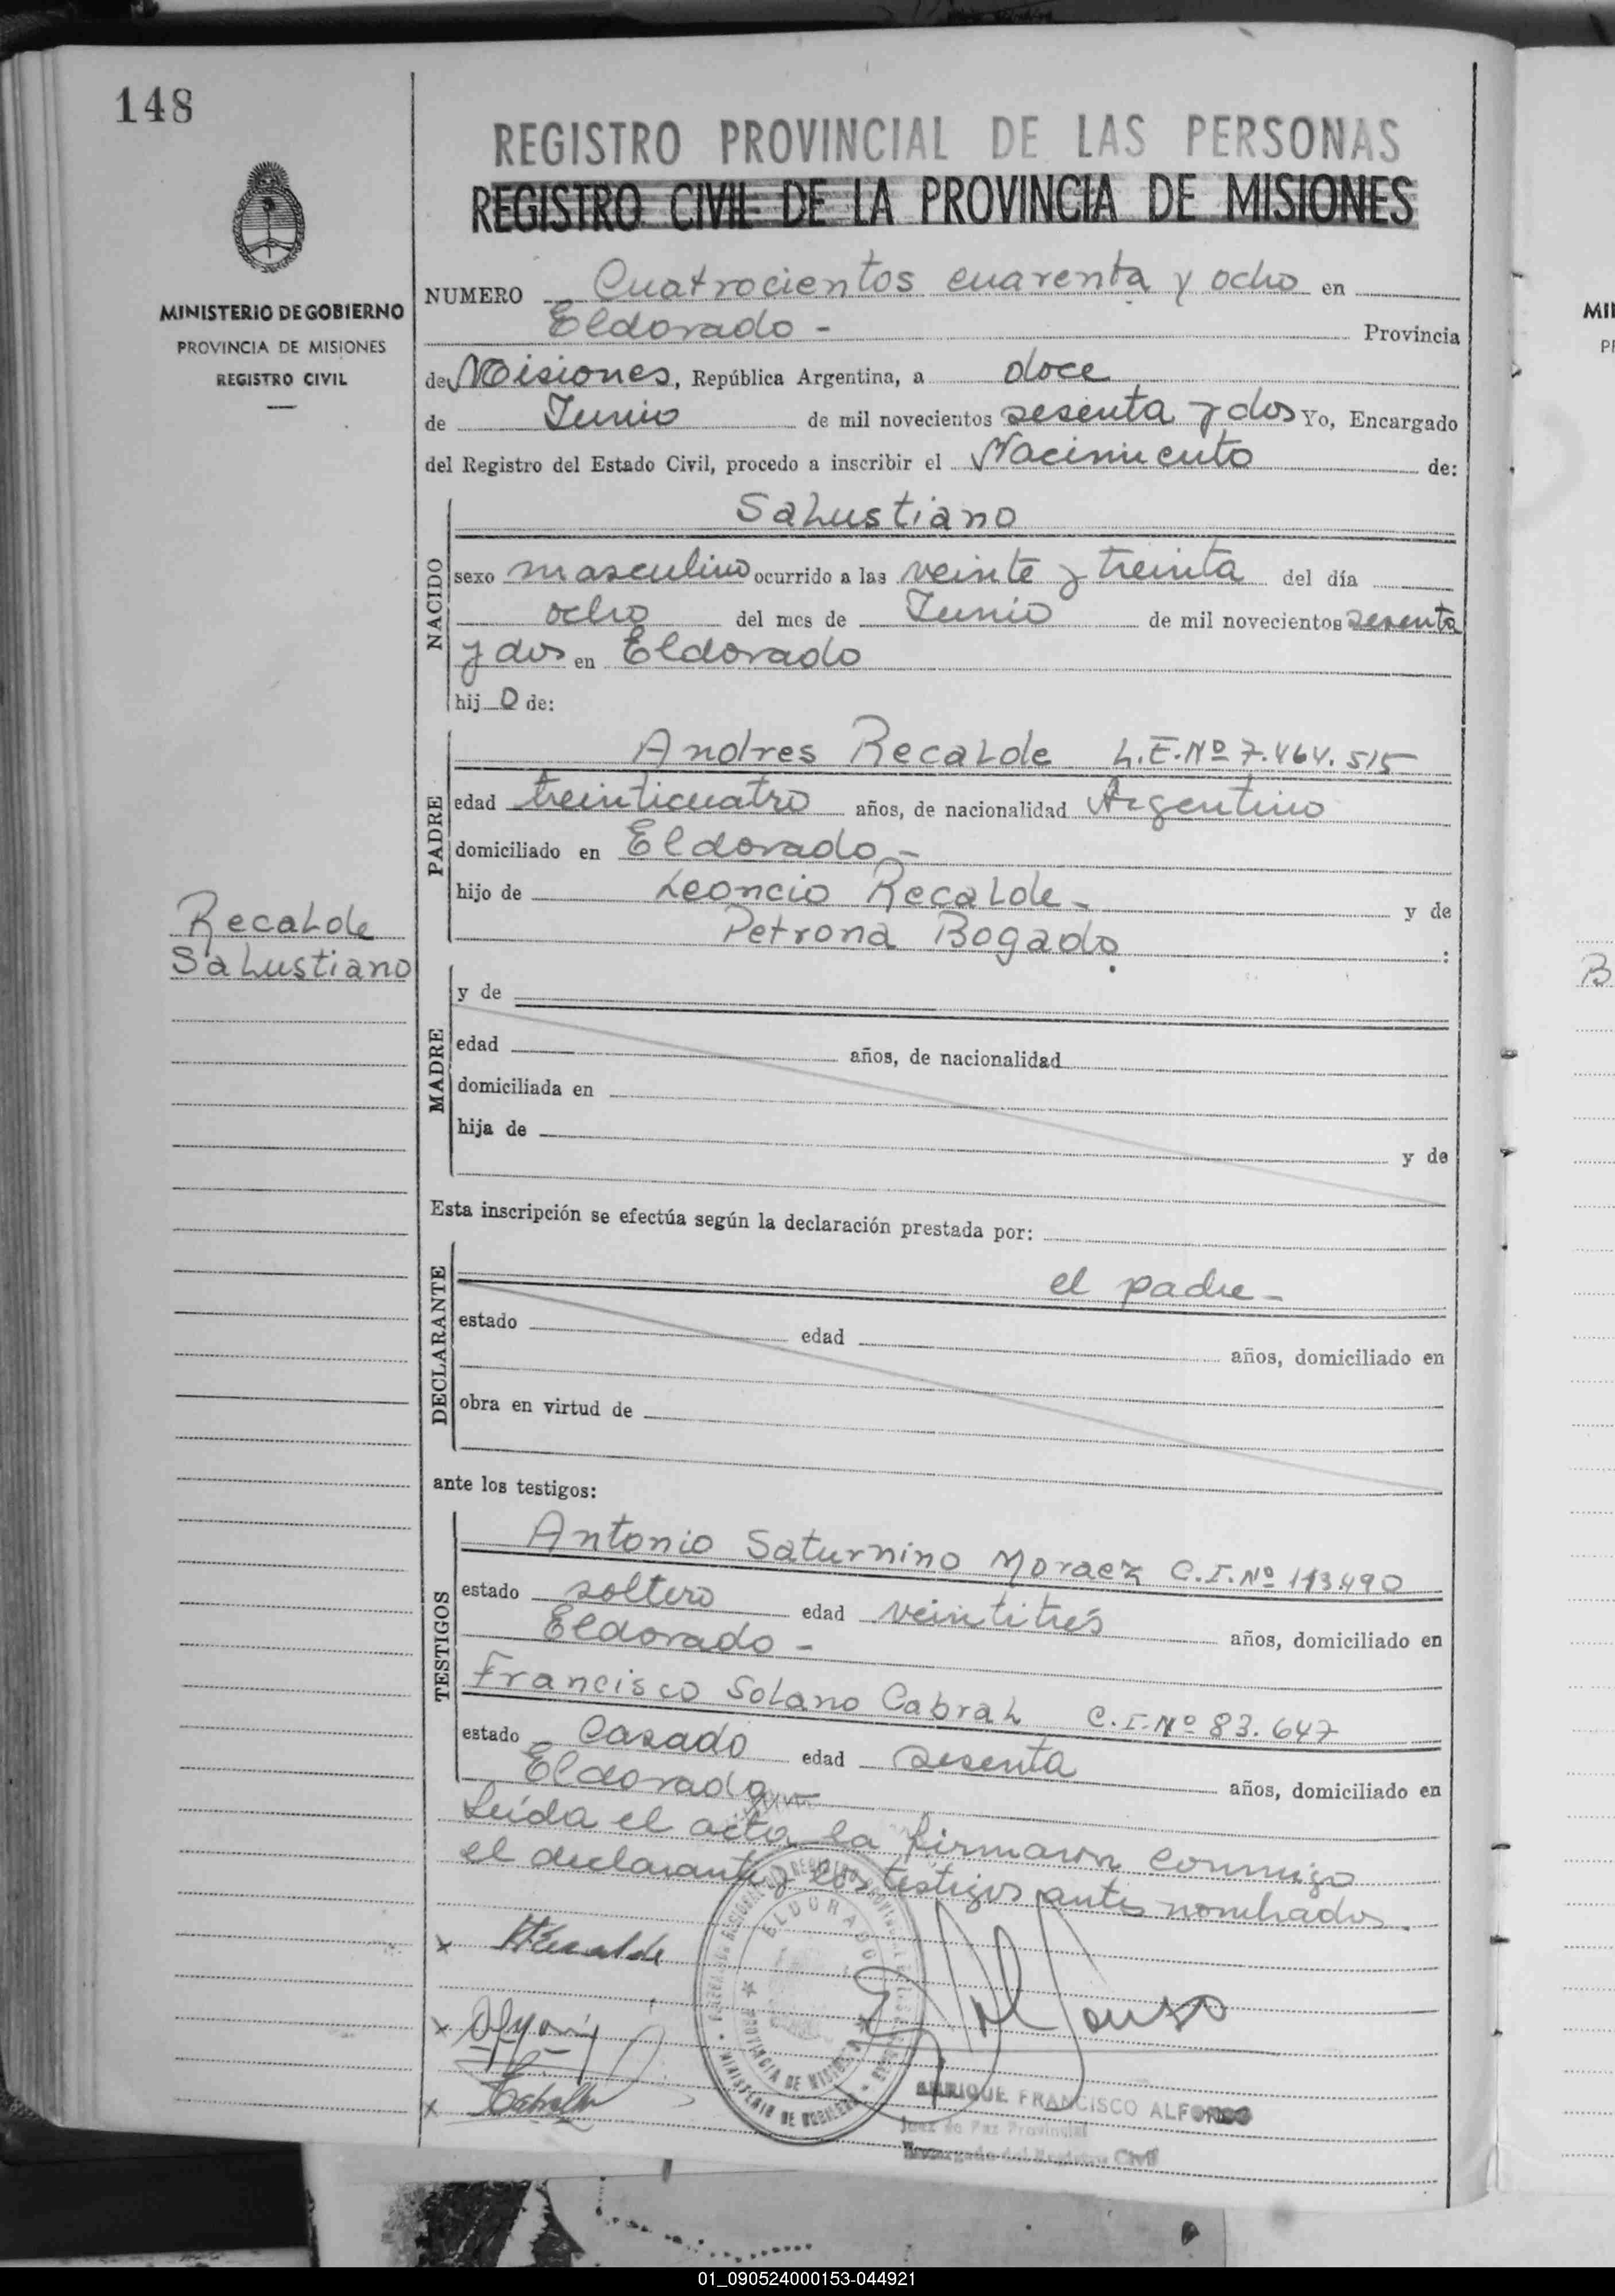 148
REGISTRO PROVINCIAL DE LAS PERSONAS
REGISTRO CIVIL DE LA PROVINCIA DE MISIONES
MINISTERIO DE GOBIERNO
PROVINCIA DE MISIONES
REGISTRO CIVIL
NUMERO Cuatrocientos cuarenta y ocho en
Eldorado - Provincia
de Misiones, República Argentina, a doce
de Junio de mil novecientos sesenta y dos Yo, Encargado
del Registro del Estado Civil, procedo a inscribir el Nacimiento de:
NACIDO
Salustiano
sexo masculino ocurrido a las veinte y treinta del día
ocho del mes de Junio de mil novecientos sesenta
y dos en Eldorado
hij o de:
PADRE
Andres Recalde L.E.Nº 7.464.515
edad treinticuatro años, de nacionalidad Argentino
domiciliado en Eldorado -
hijo de Leoncio Recalde - y de
Petrona Bogado. :
Recalde
Salustiano
MADRE
y de
edad años, de nacionalidad
domiciliada en
hija de y de
Esta inscripción se efectúa según la declaración prestada por:
DECLARANTE
el padre -
estado edad años, domiciliado en
obra en virtud de
ante los testigos:
TESTIGOS
Antonio Saturnino Moraez C.I.Nº 113490
estado soltero edad veintitrés años, domiciliado en
Eldorado -
Francisco Solano Cabral C.I.Nº 83.647
estado Casado edad sesenta años, domiciliado en
Eldorado
Leída el acta la firmaron conmigo
el declarante y los testigos antes nombrados.
x Recalde
x
x Cabral
ELDORADO
PROVINCIA DE MISIONES
MINISTERIO DE GOBIERNO
ENRIQUE FRANCISCO ALFONSO
Juez de Paz Provincial
Encargado del Registro Civil
MI
P
B
01_090524000153-044921